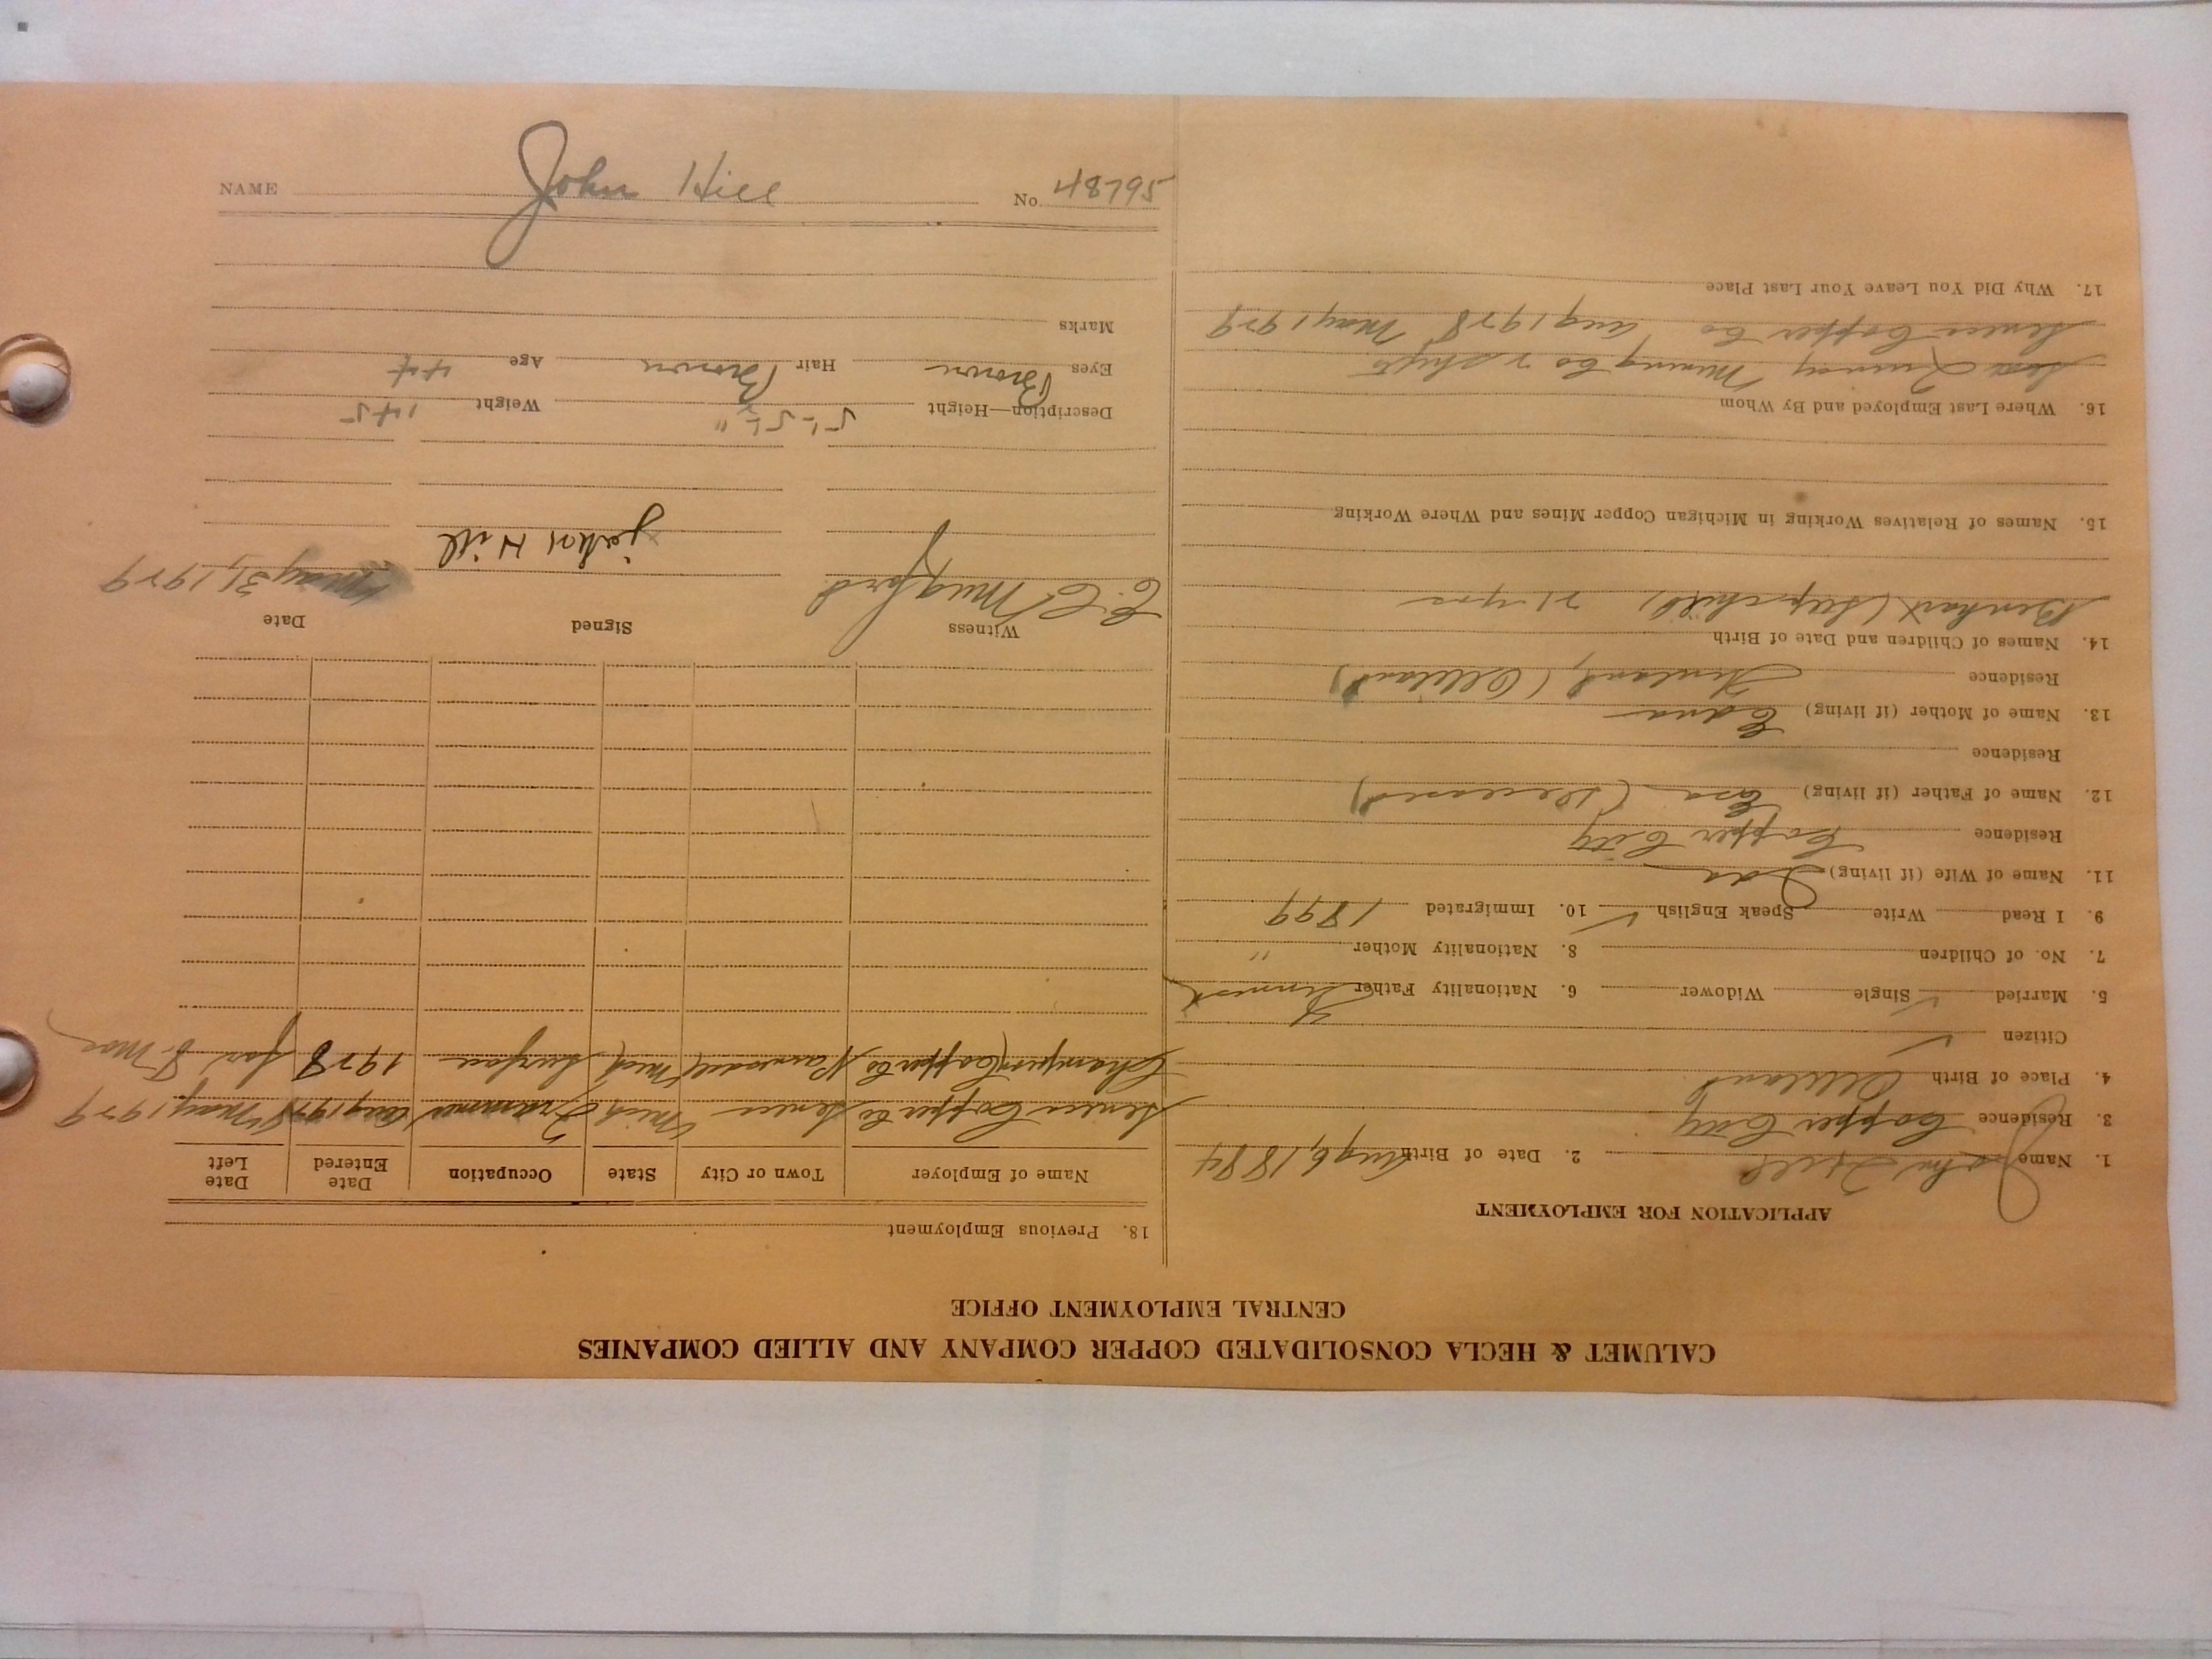 CALUMET & HECLA CONSOLIDATED COPPER COMPANY AND ALLIED COMPANIES
CENTRAL EMPLOYMENT OFFICE
APPLICATION FOR EMPLOYMENT
1. Name John Hill 2. Date of Birth Aug 6, 1884
3. Residence Copper City
4. Place of Birth
Citizen ✓
5. Married ✓ Single Widower 6. Nationality Father Finnish
7. No. of Children 8. Nationality Mother "
9. I Read Write Speak English ✓ 10. Immigrated 1899
11. Name of Wife (if living) Ida
Residence Copper City
12. Name of Father (if living) (Deceased)
Residence
13. Name of Mother (if living)
Residence Finland,
14. Names of Children and Date of Birth
(Stepchild) 21 yrs
15. Names of Relatives Working in Michigan Copper Mines and Where Working
16. Where Last Employed and By Whom
Quincy Mining Co 2 shifts
Seneca Copper Co Aug 1928 May 1929
17. Why Did You Leave Your Last Place
18. Previous Employment
Name of Employer Town or City State Occupation Date Entered Date Left
Seneca Copper Co Seneca Mich Trammer Aug 1928 May 1929
Champion Copper Co Painesdale Mich Surface 1928 for 8 mos
Witness Signed Date
E. C. Mugford May 31, 1929
John Hill
Description—Height 5'-5½" Weight 145
Eyes Brown Hair Brown Age 44
Marks
NAME John Hill No. 48795